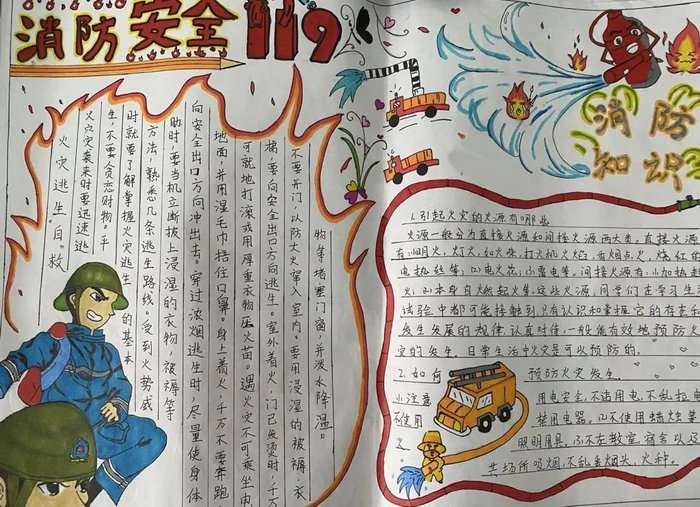 消防安全119
火灾逃生自救
火灾袭来时要迅速逃
生,不要贪恋财物。平
时就要了解掌握火灾逃生的基本
方法,熟悉几条逃生路线。受到火势威
胁时,要当机立断披上浸湿的衣物,被褥等
向安全出口方向冲出去。穿过浓烟逃生时,尽量使身体
地面,并用湿毛巾捂住口鼻。身上着火,千万不要奔跑,
可就地打滚或用厚重衣物压火苗。遇火灾不可乘坐电
梯,要向安全出口方向逃生。室外着火,门已发烫时,千万
不要开门,以防大火窜入室内。要用浸湿的被褥,衣
物等堵塞门窗,并泼水降温。
消防
知识
1.引起火灾的火源有哪些
火源一般分为直接火源和间接火源两大类。直接火源
有小明火,灯火,如火柴,打火机火焰,香烟点火,烧红的
电热丝等,(2)电火花,(3)雷电等。间接火源有(1)加热
火,(2)本身自火燃起火等,这些火源,同学们在学习生
试验中都可能接触到,只有认识和掌握它的存在和
发生发展的规律,认真对待,一般能有效地预防火
灾的发生。日常生活中火灾是可以预防的。
2.如何预防火灾发生
(1)注意用电安全,不诸用电,不乱拉电
不使用禁用电器。(2)不使用蜡烛等
之照明用具。(3)不在教室,宿舍以及
共场所吸烟,不乱丢烟头,火种。